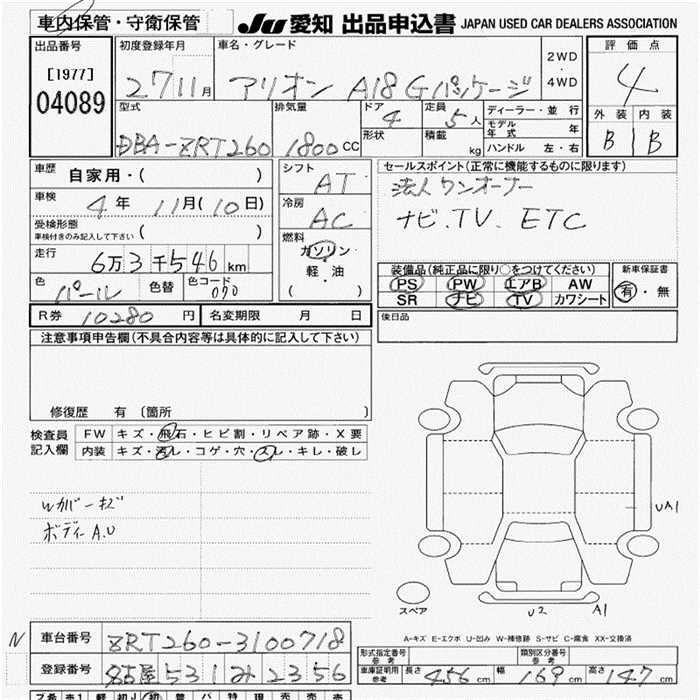 車内保管・守衛保管
JU 愛知 出品申込書 JAPAN USED CAR DEALERS ASSOCIATION
出品番号 初度登録年月 車名・グレード 評価点
[1977] 04089
27 11月 アリオン A18 Gパッケージ 2WD・4WD 4
型式 排気量 ドア 4 定員 5人 ディーラー・並行 外装 内装
DBA-ZRT260 1800CC 形状 積載 kg モデル年式 年 B B
ハンドル 左・右
車歴 自家用・( ) シフト AT セールスポイント(正常に機能するものに限ります)
車検 4年 11月(10日) 冷房 AC 法人ワンオーナー
受検形態 車検付きのみ記入して下さい ( ) 燃料 ナビ.TV. ETC
走行 6万3千546km ガソリン・軽・油 ( )
装備品(純正品に限り○をつけてください) 新車保証書
色 パール 色替 色コード 070 PS PW エアB AW 有・無
SR ナビ TV カワシート
R券 10280円 名変期限 月 日 後日品
注意事項申告欄(不具合内容等は具体的に記入して下さい)
修復歴 有 〔箇所 〕
検査員記入欄 FW キズ・飛石・ヒビ割・リペア跡・X要
内装 キズ・汚レ・コゲ・穴・スレ・キレ・破レ
Wカバーキズ
ボディーA.U
UA1
スペア U2 A1
A-キズ E-エクボ U-凹み W-補修跡 S-サビ C-腐食 XX-交換済
N 車台番号 ZRT260-3100718 形式指定番号 参考 類別区分番号 参考
登録番号 名古屋 531 み 2356 車庫証明用 参考 長さ 456cm 幅 169cm 高さ 147cm